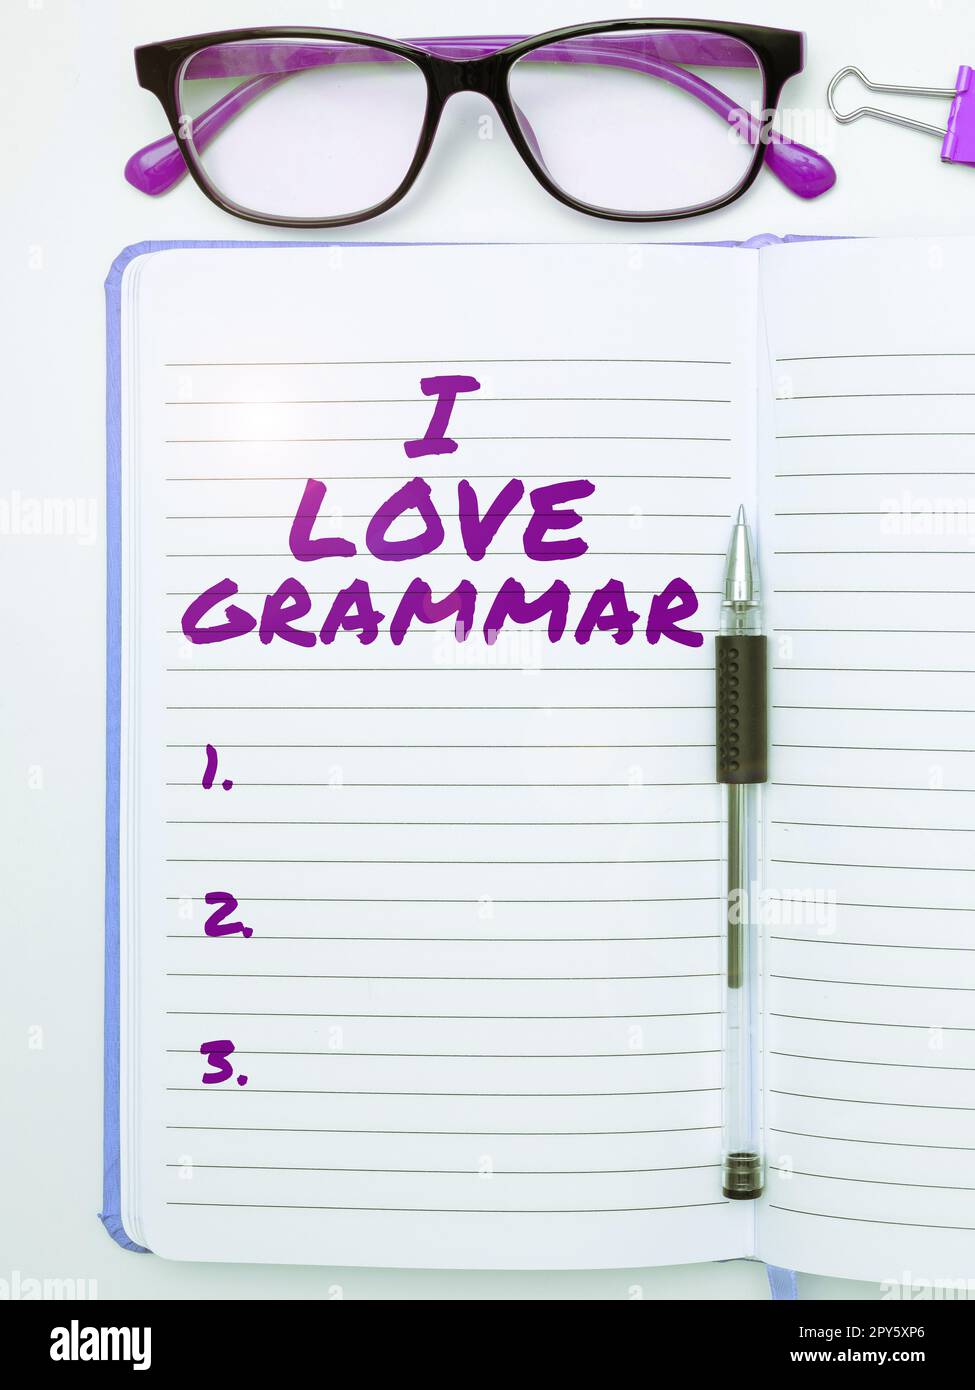 I
LOVE
GRAMMAR
1.
2.
3.
alamy
alamy
Image ID: 2PY5XP6
www.alamy.com